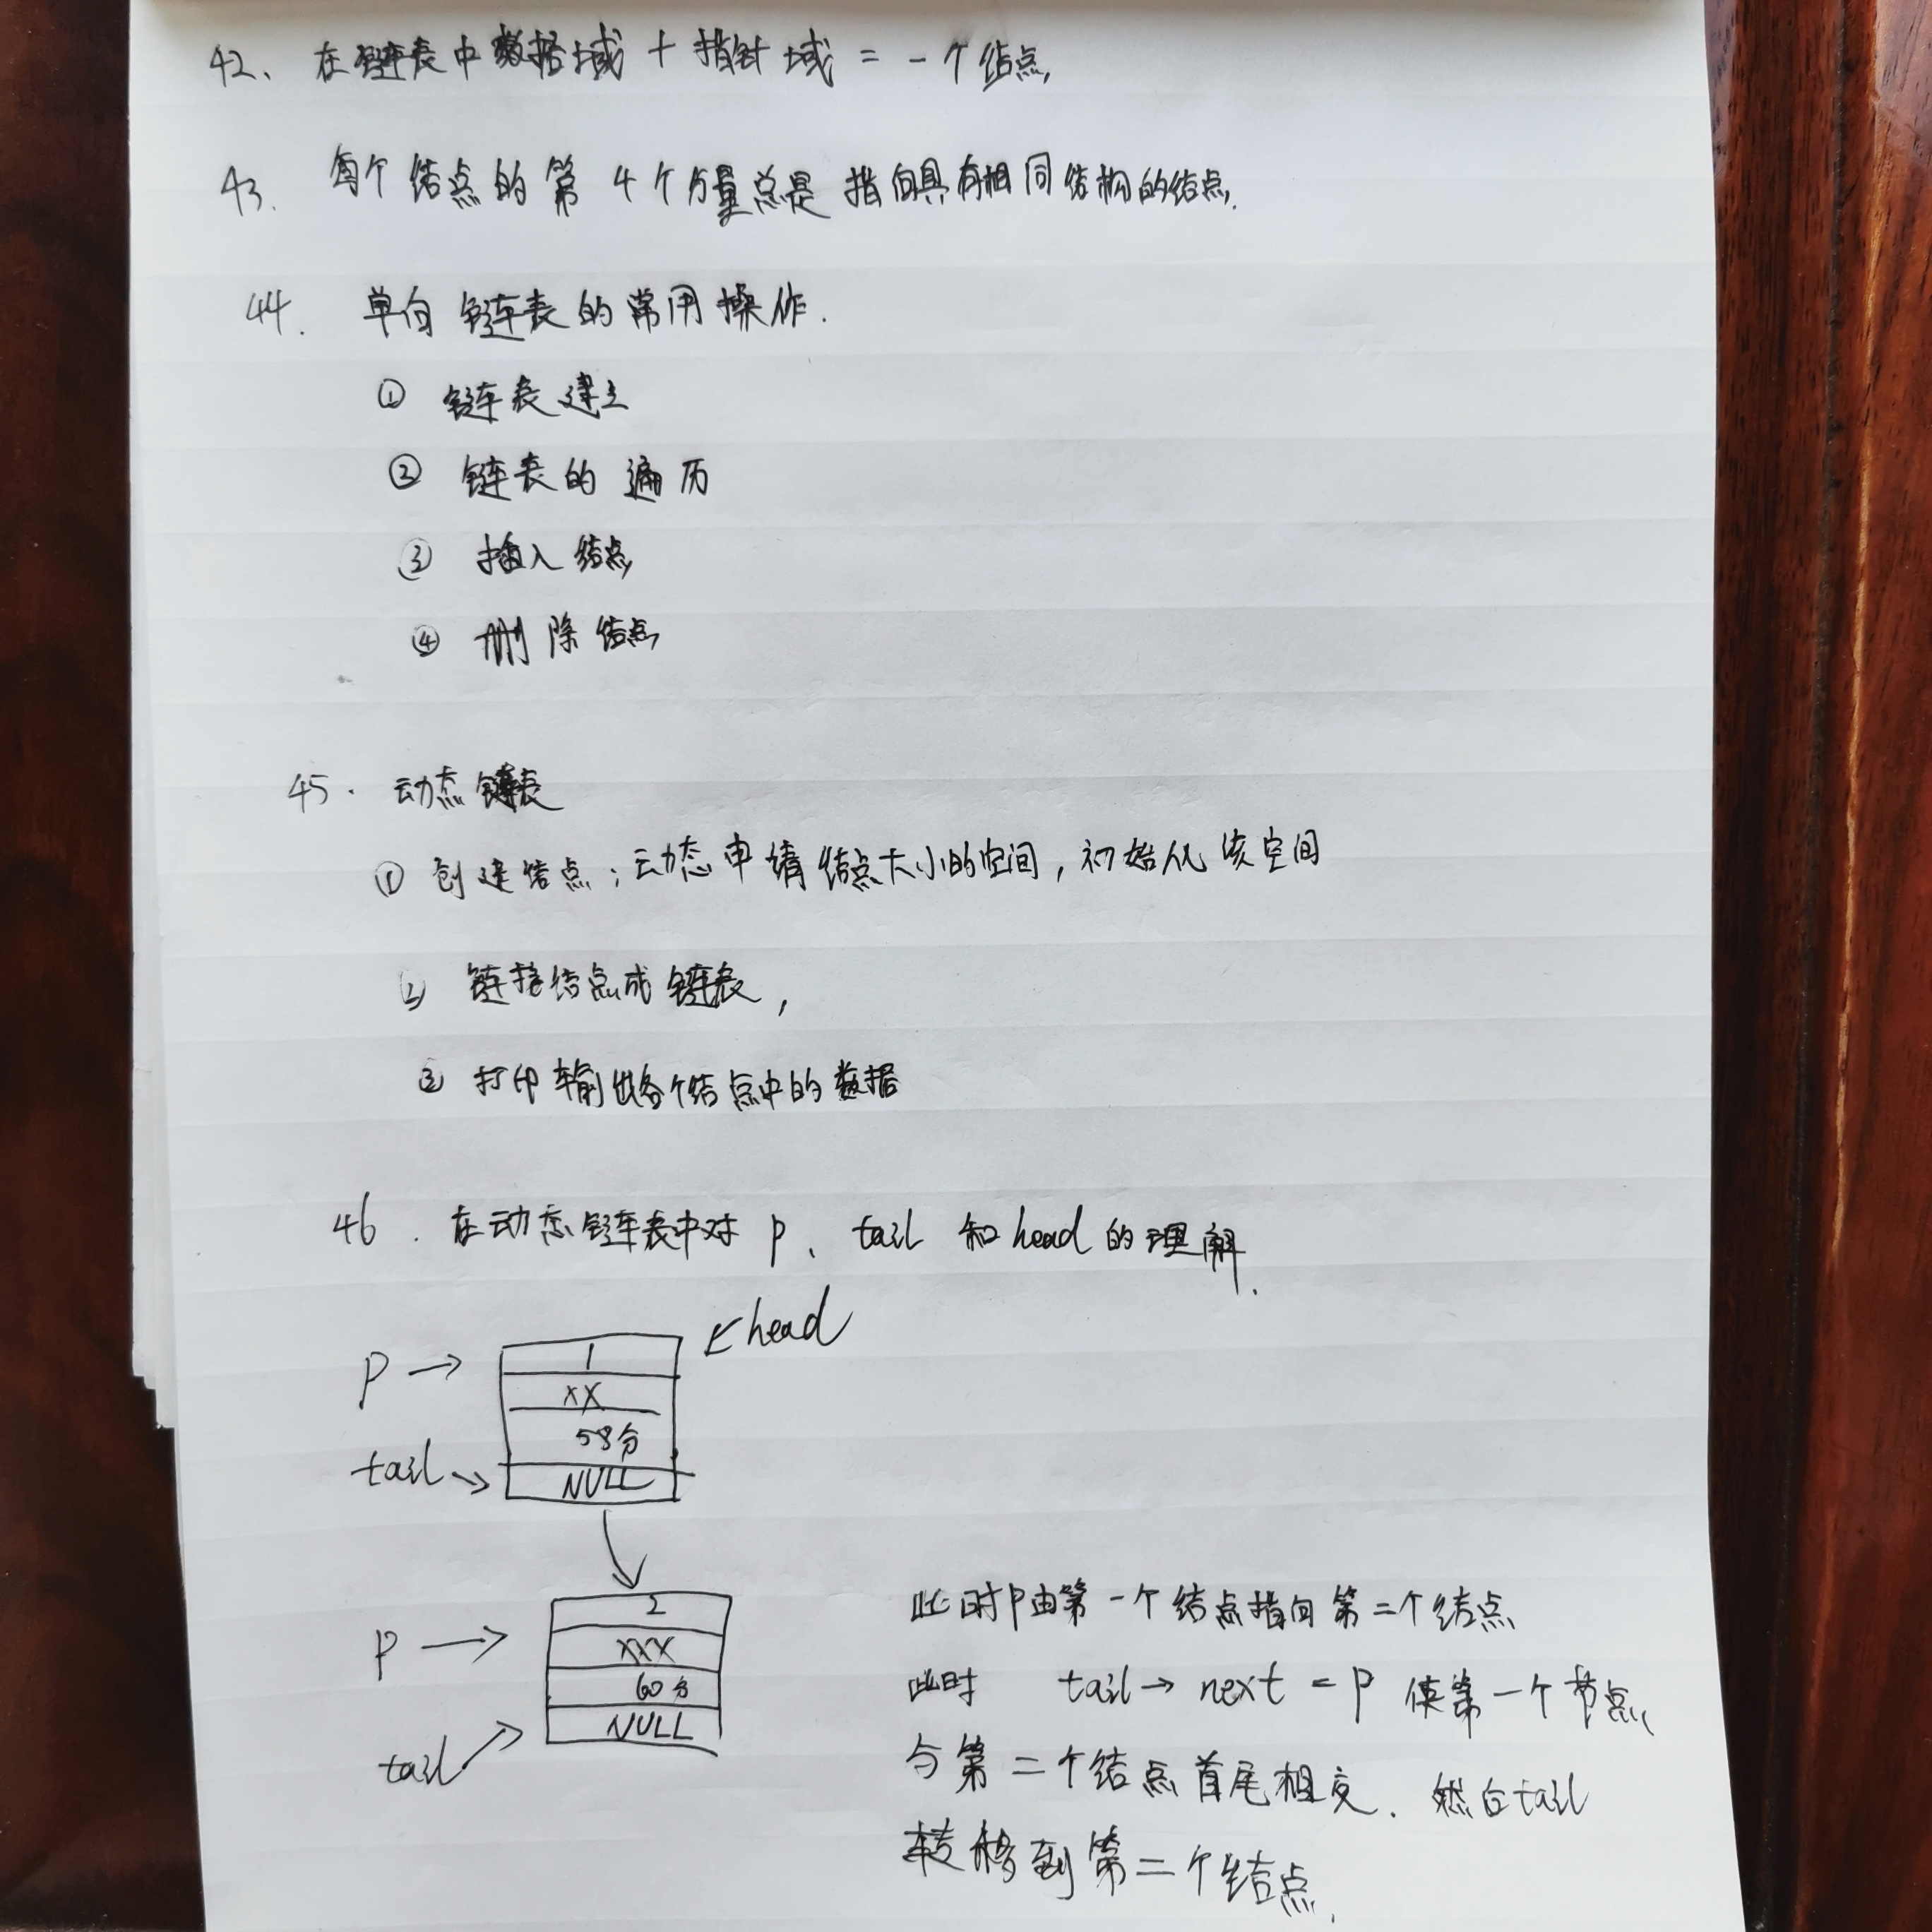 42、在链表中数据域 + 指针域 = 一个结点,
43. 每个结点的第 4 个分量总是指向具有相同结构的结点.
44. 单向链表的常用操作.
① 链表建立
② 链表的遍历
③ 插入结点
④ 删除结点
45. 动态链表
① 创建结点；动态申请结点大小的空间，初始化该空间
② 链接结点成链表，
③ 打印输出各个结点中的数据
46. 在动态链表中对 p、tail 和 head 的理解.
head
P → 1
XX
58分
tail → NULL
2
P → XXX
60分
tail NULL
此时P由第一个结点指向第二个结点
此时 tail → next = P 使第一个节点
与第二个结点首尾相交. 然后tail
转移到第二个结点.